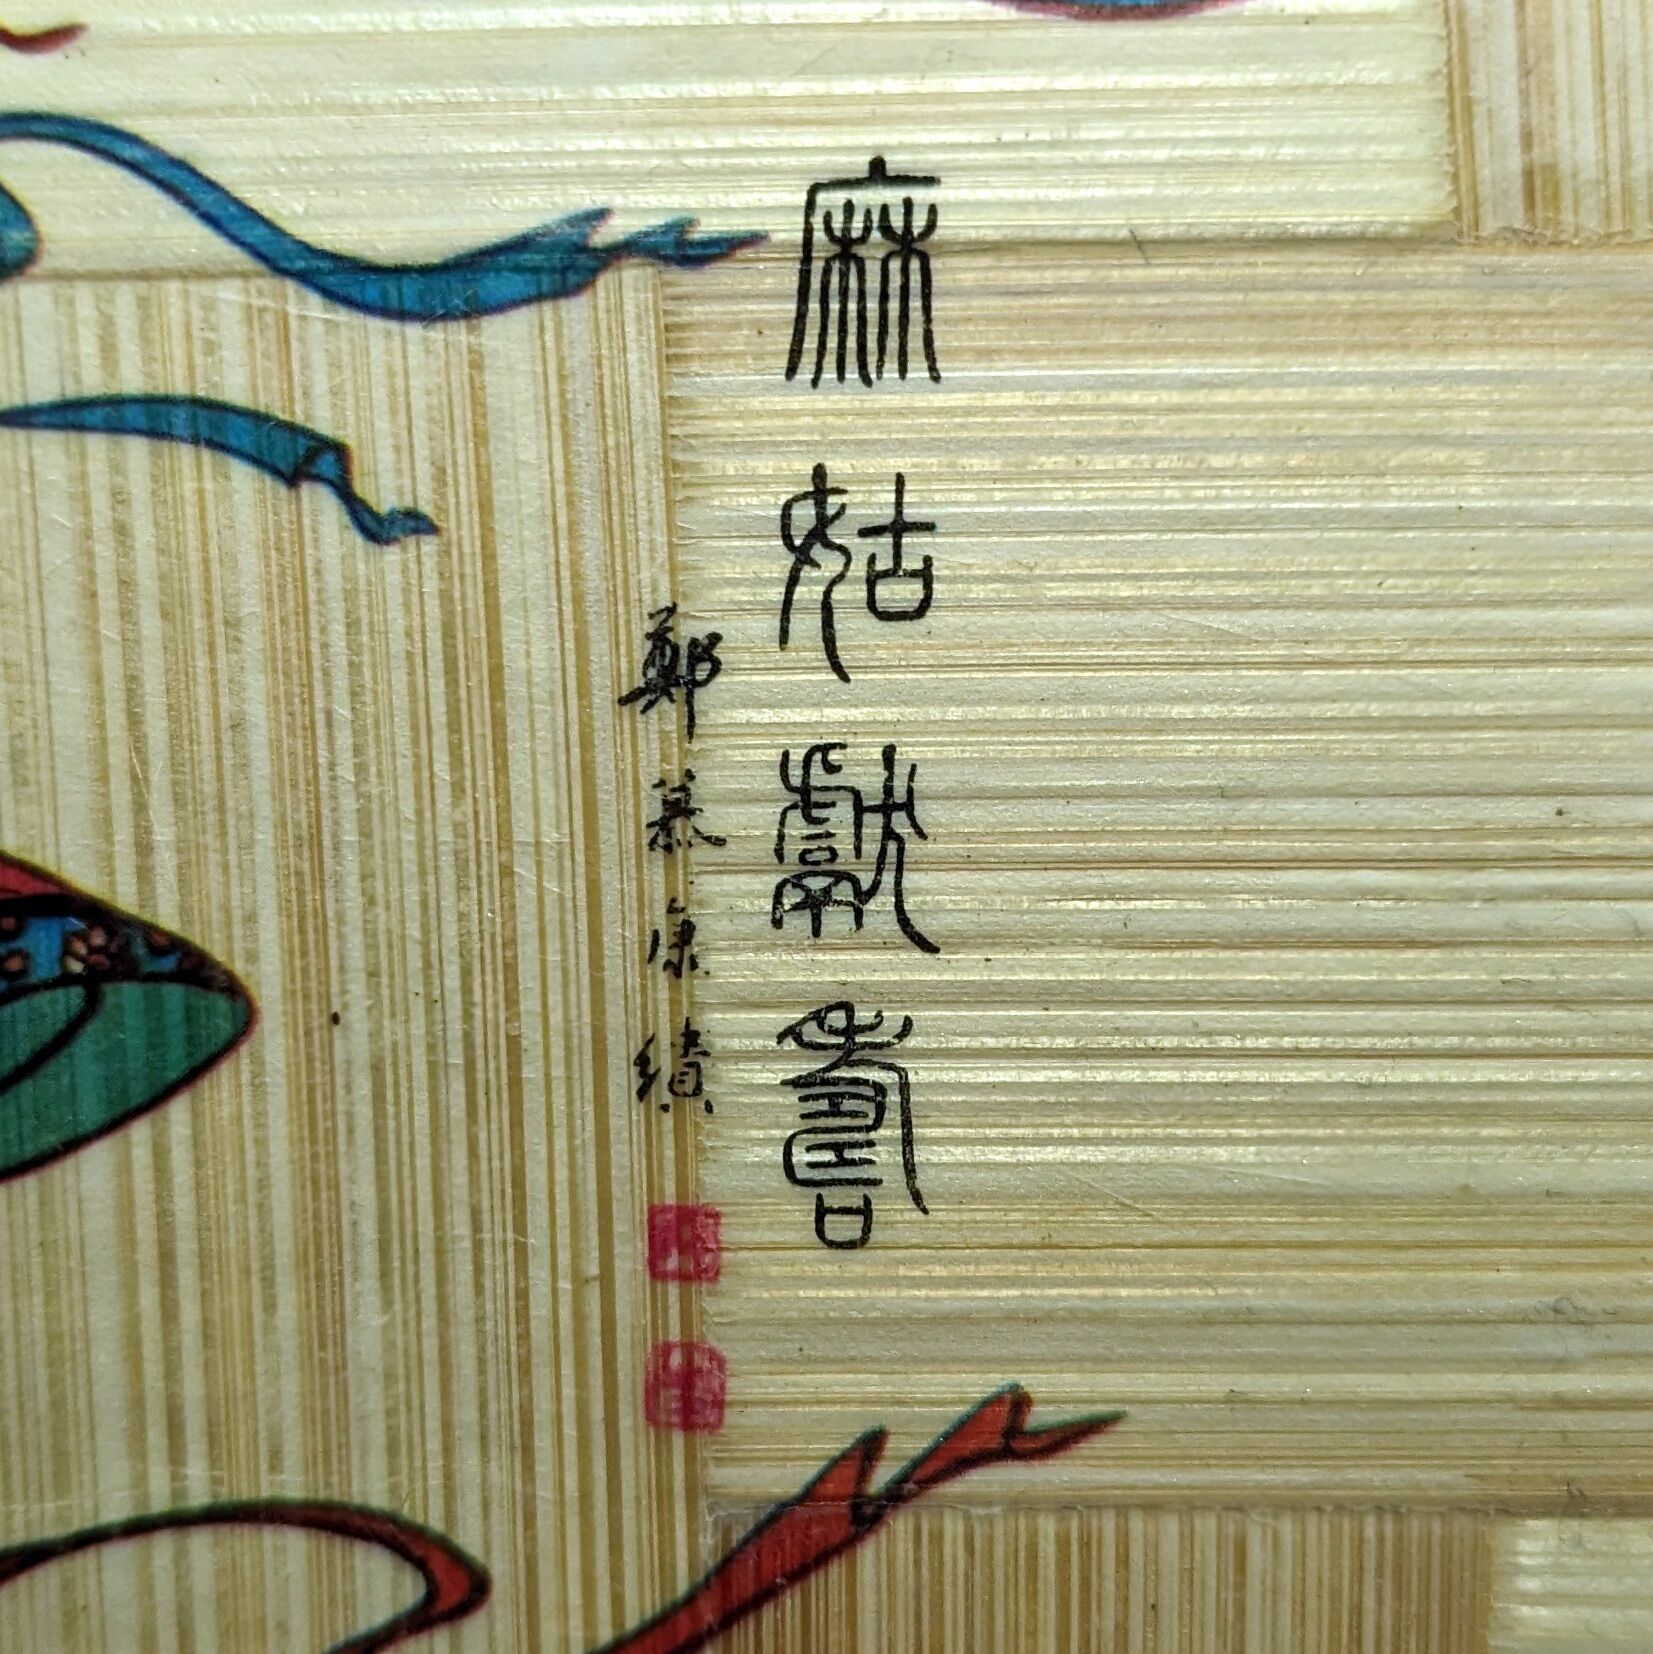 麻姑獻壽
鄭慕康繢